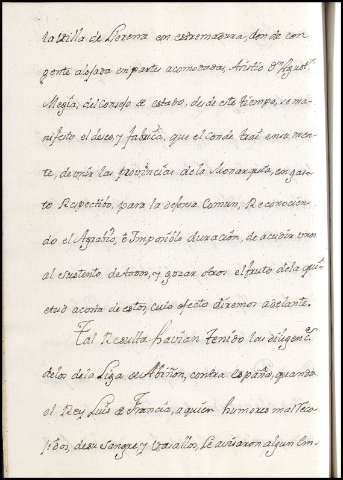 la Villa de Lorena en estremadura, donde con
gente alojada en partes acomodadas, Asistio Dn Agustn
Megia, del consejo de estado, desde este tiempo, se ma-
nifesto el deseo, y fabrica, que el conde traé en su men-
te, de unir las provincias de la Monarquia, en gas-
to Respectibo, para la defensa Comun, Reconocien-
do el Agrabio, é Imposible duracion, de acudir unos
al sustento de todos, y gozar otros el fruto de la quie-
tud acosta de estos, cuio efecto diremos adelante.
Tal Resulta havian Tenido las diligens
de los de la Liga de Abiñon, contra españa, quando
el Rey Luis de Francia, a quien humores mal Reco-
jidos, de su Sangre, y Vasallos, Le avisaron algun con-